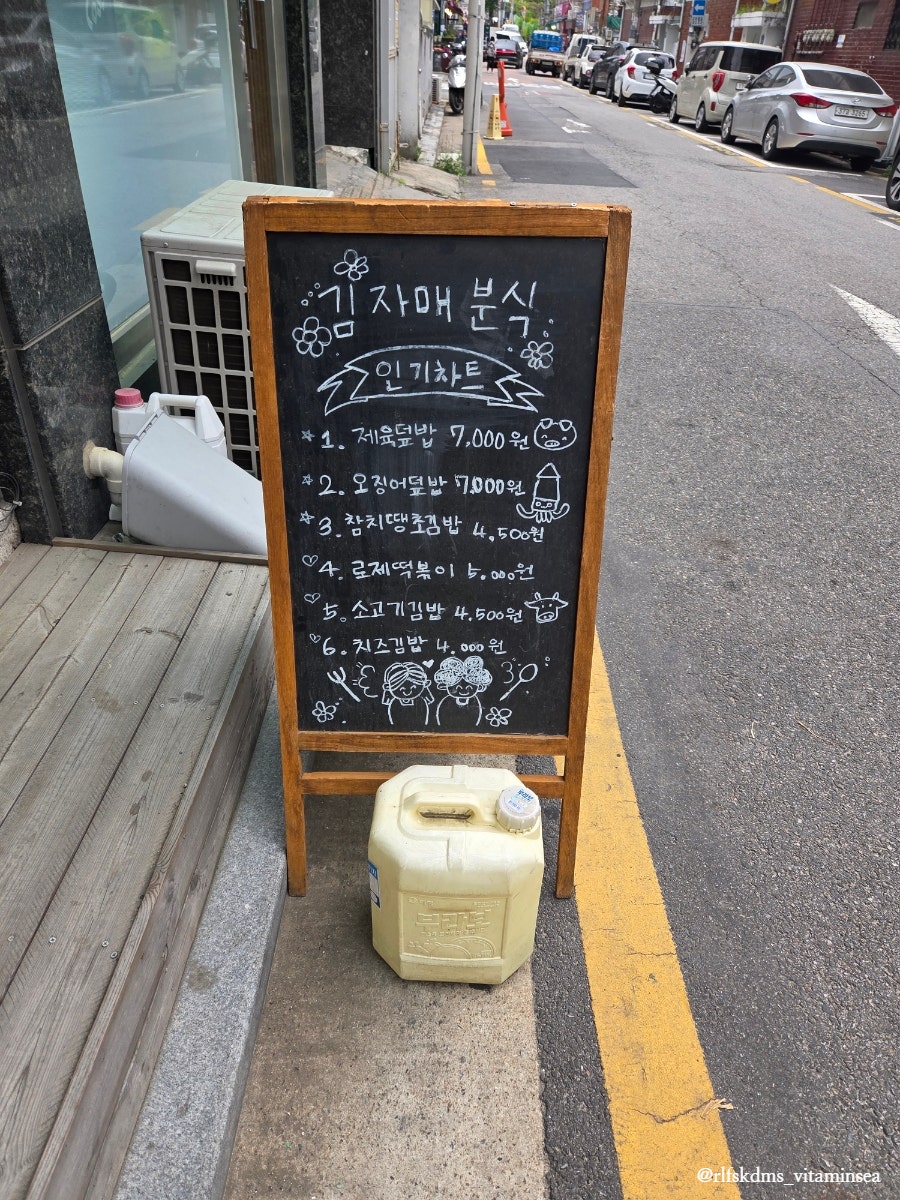 김자매 분식
인기차트
1. 제육덮밥 7.000원
2. 오징어덮밥 7.000원
3. 참치땡초김밥 4,500원
4. 로제떡볶이 5.000원
5. 소고기김밥 4.500원
6. 치즈김밥 4.000원
@rlfskdms_vitaminsea